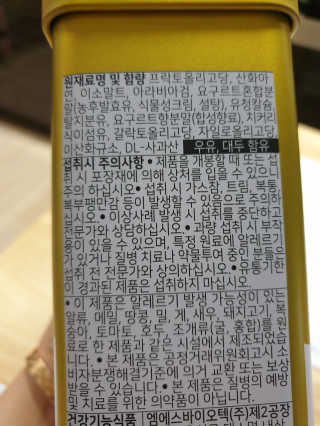 원재료명 및 함량 프락토올리고당, 산화아
연, 이소말트, 아라비아검, 요구르트혼합분
말(농후발효유, 식물성크림, 설탕), 유청칼슘,
탈지분유, 요구르트향분말(합성향료), 치커리
식이섬유, 갈락토올리고당, 자일로올리고당,
이산화규소, DL-사과산 우유, 대두 함유
섭취시 주의사항 • 제품을 개봉할 때 또는 섭
취 시 포장재에 의해 상처를 입을 수 있으니
주의 하십시오 • 섭취 시 가스참, 트림, 복통,
복부팽만감 등이 발생할 수 있음으로 주의하
십시오 • 이상사례 발생 시 섭취를 중단하고
전문가와 상담하십시오. • 과량 섭취 시 부작
용이 있을 수 있으며, 특정 원료에 알레르기
가 있거나 질병 치료나 약물투여 중인 분들은
섭취 전 전문가와 상의하십시오 • 유통기한
이 경과된 제품은 섭취하지 마십시오.
• 이 제품은 알레르기 발생 가능성이 있는
알류, 메밀, 땅콩, 밀, 게, 새우, 돼지고기, 복
숭아, 토마토, 호두, 조개류(굴, 홍합)를 원
료로 한 제품과 같은 시설에서 제조되었습
니다. • 본 제품은 공정거래위원회고시 소
비자분쟁해결기준에 의거 교환 또는 보상
받을 수 있습니다 • 본 제품은 질병의 예방
및 치료를 위한 의약품이 아닙니다.
건강기능식품 엠에스바이오텍(주)제2공장